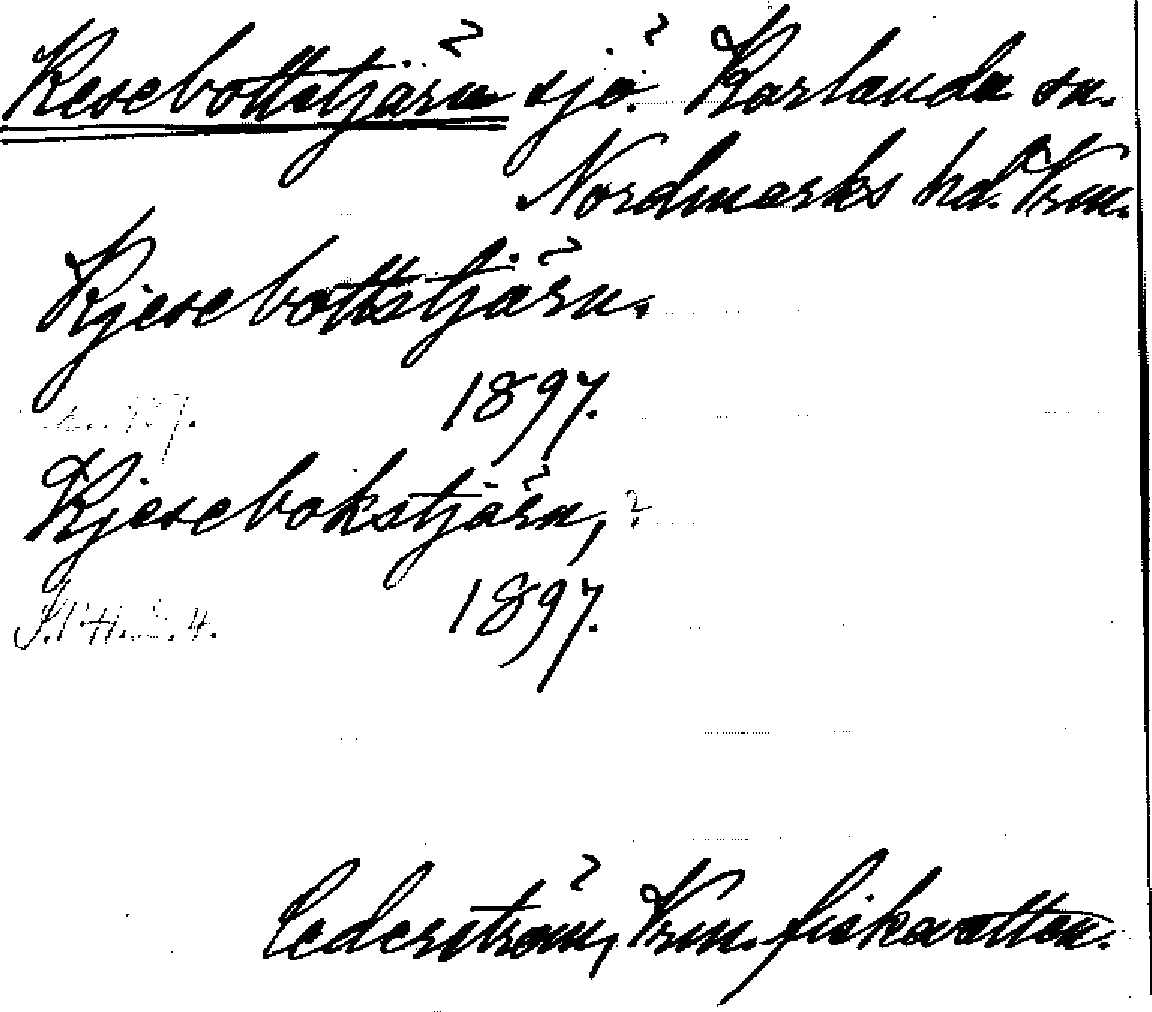 Kesebottstjärn sjö. Karlanda sn.
Nordmarks hd. Vrm.
Kjesebottstjärn.
1897.
Kjesebokstjärn,
1897.
Cederström, Vrm. fiskevatten.